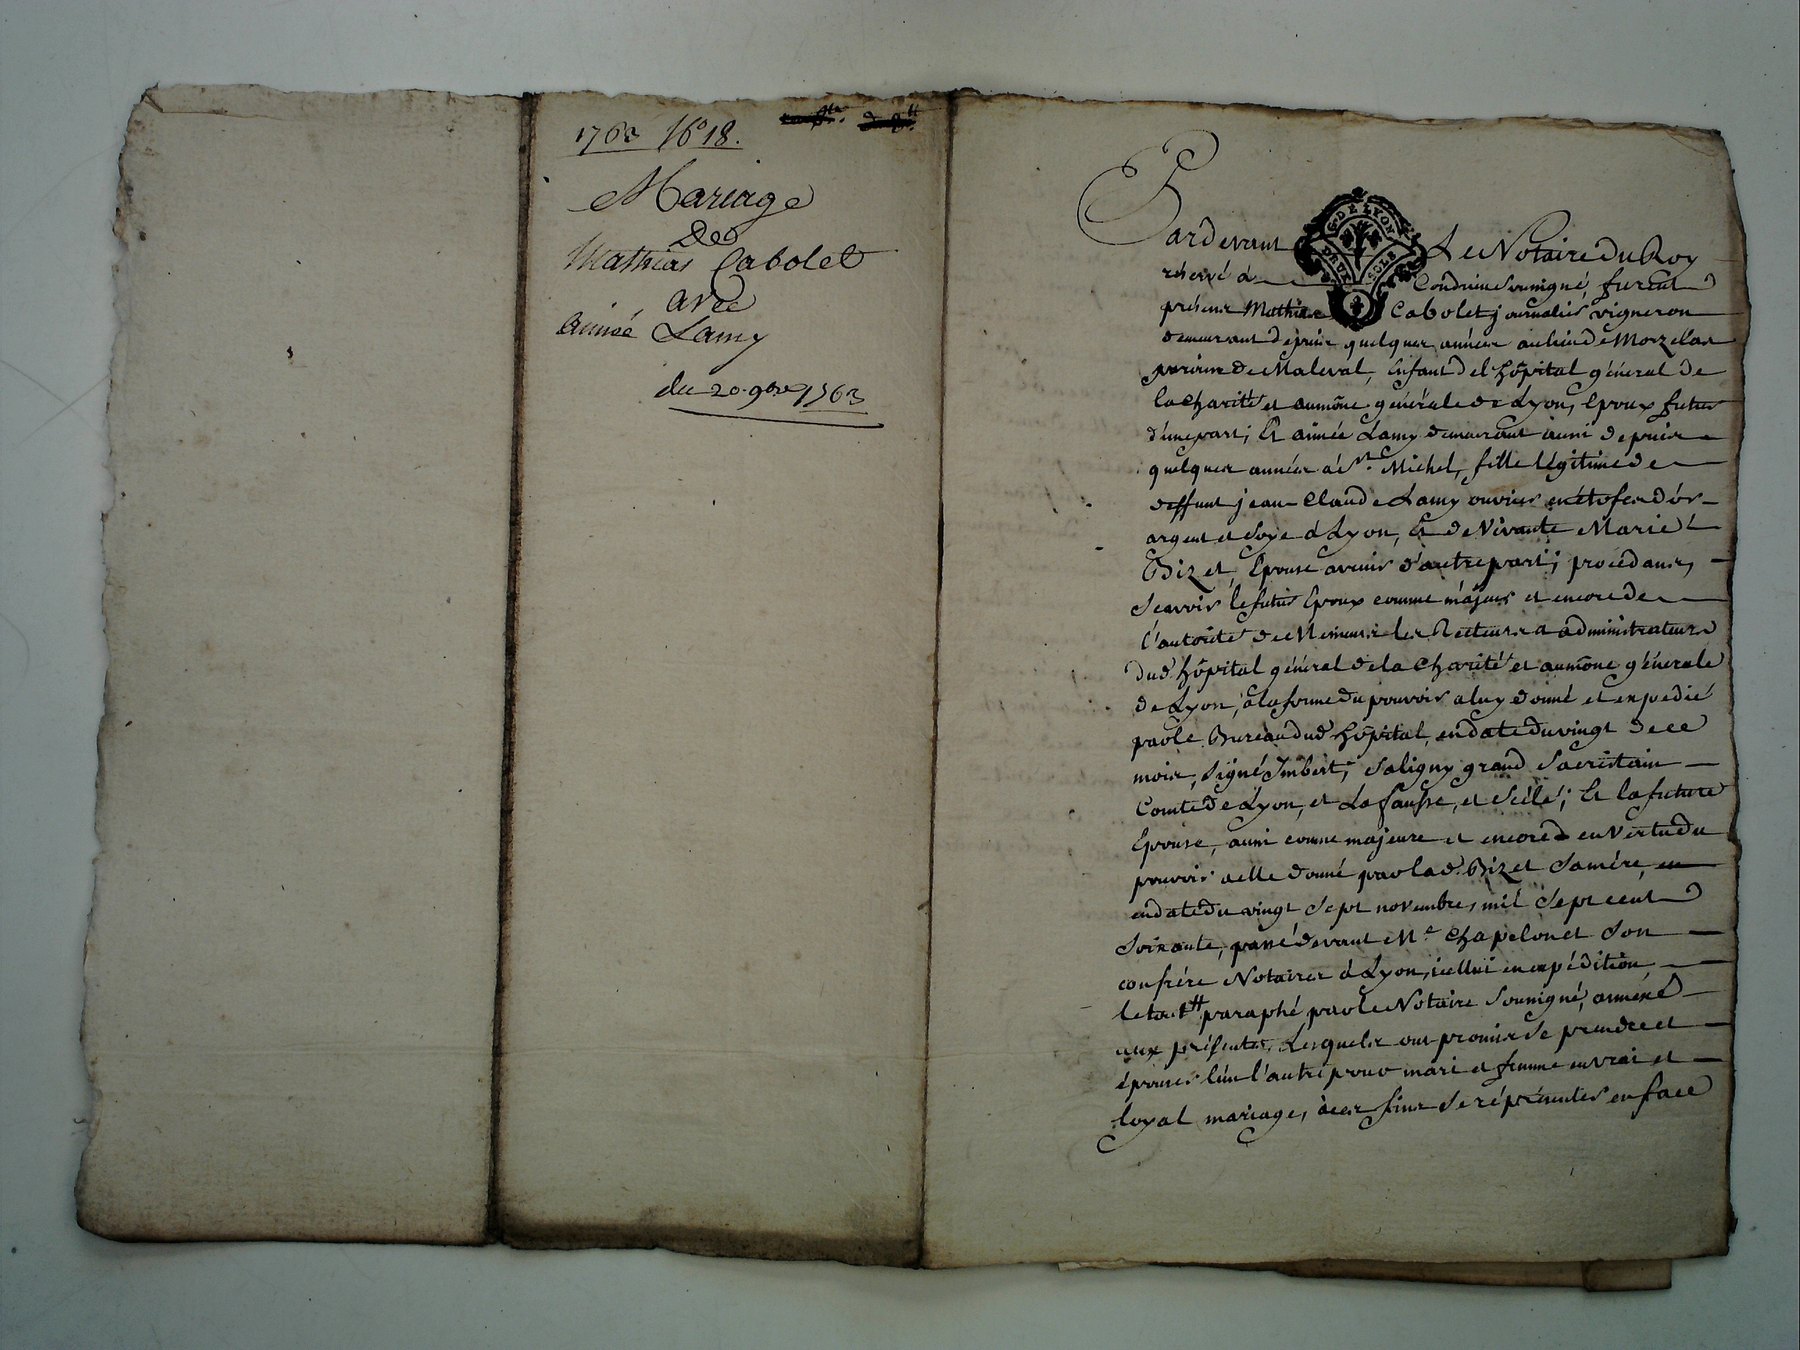 1763 N° 18.
Mariage
De
Mathias Cabolet
avec
Aimée Lamy
du 20 9bre 1763
G. DE LYON
DEUX SOLS
Pardevant Le Notaire Du Roy
réservé à Condrieu soussigné, furent
présens Mathias Cabolet journalier vigneron
demeurant depuis quelques années au lieu de
paroisse de Maleval, Enfant de l'hôpital général de
la Charité et aumône générale de Lyon, Epoux futur
d'une part; Et aimée Lamy demeurant aussi depuis
quelques années à St. Michel, fille légitime de
deffunt jean Claude Lamy ouvrier en étofes d'or
argent et soye à Lyon, Et de Vivante Marie
Bizet, Epouse avenir d'autre part; procédans,
Scavoir le futur Epoux comme majeur et encore de
l'autorité de Messieurs les Recteurs et administrateurs
dud. hôpital général de la Charité et aumône générale
de Lyon, à la forme du pouvoir a luy donné et expedié
par le Bureau dud. hôpital, en date du vingt de ce
mois, signé Imbert, Saligny grand Sacristain
Comte de Lyon, et La fausse, et scélé; Et la future
Epouse, aussi comme majeure et encore en Vertu du
pouvoir a elle donné par lad. Bizet sa mére, en
en date du vingt sept novembre, mil sept cent
soixante, passé devant Me. Chapelon et son
confrére Notaires à Lyon, icellui en expédition,
le tout paraphé par le Notaire soussigné, annexé
aux présentes, Lesquels ont promis se prendre et
épouser l'un l'autre pour mari et femme en vrai et
loyal mariage, à ces fins se réprésenter en face